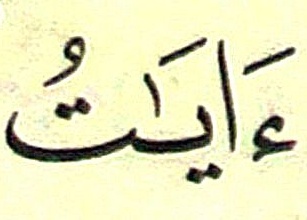 ءَايَٰتُ